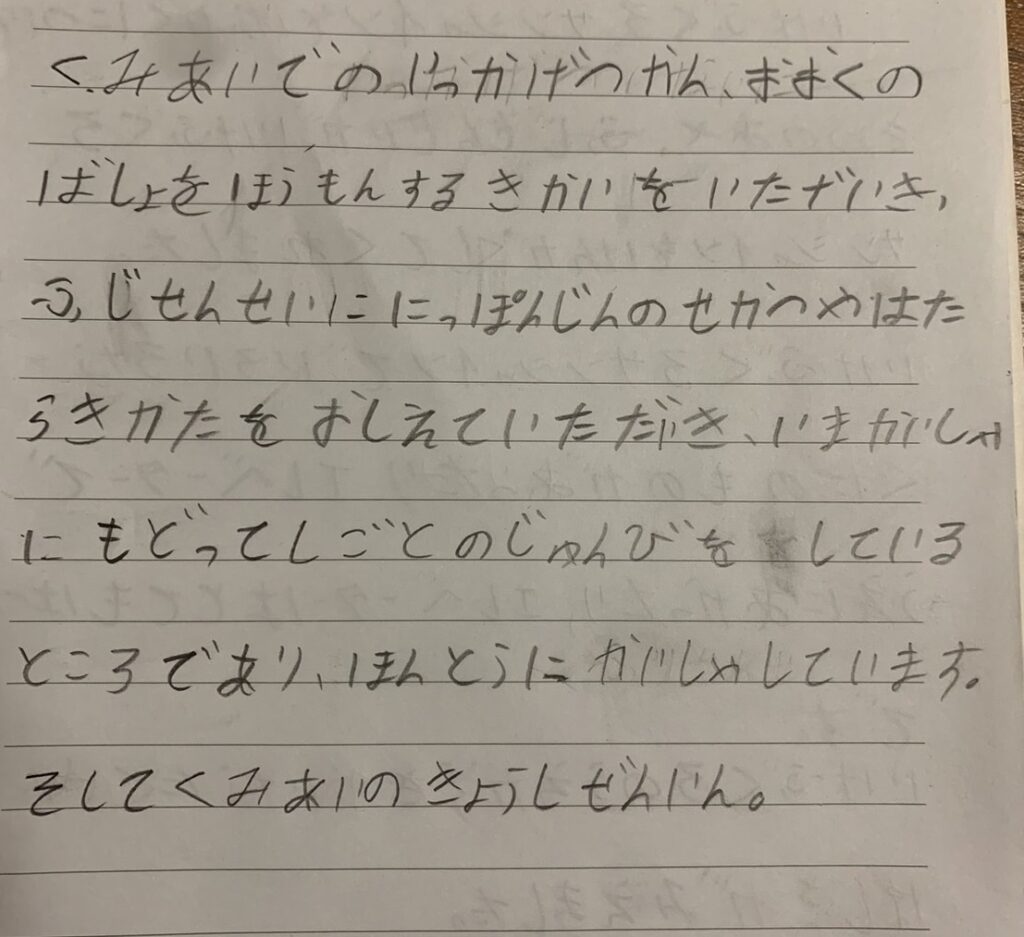 くみあいでのいっかげつかん、おおくの
ばしょをほうもんするきかいをいただいき、
うじせんせいににっぽんじんのせかつやはた
らきかたをおしえていただいき、いまがいしゃ
にもどってしごとのじゅんびをしている
ところであり、ほんとうにがいしゃしています。
そしてくみあいのきょうしぜんいん。